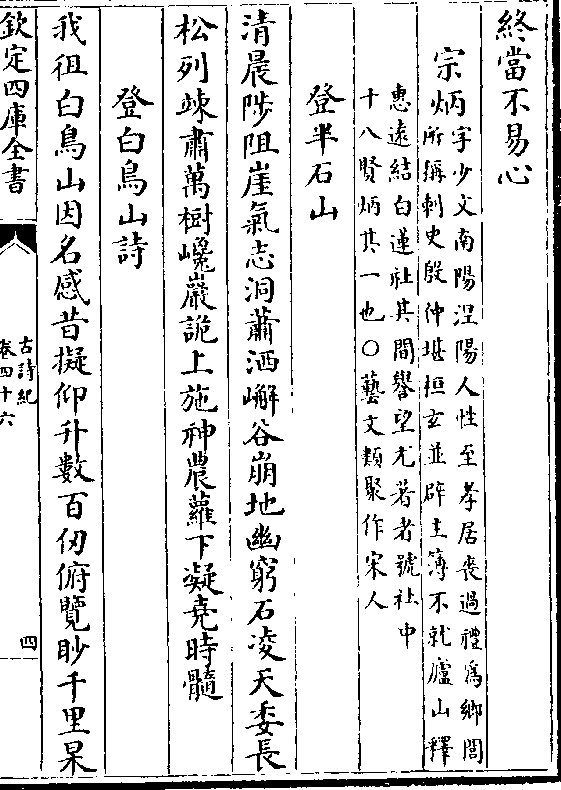 終當不易心
宗炳
字少文南陽涅陽人性至孝居喪過禮為鄉閭
所稱刺史殷仲堪桓玄並辟主簿不就廬山釋
惠遠結白蓮社其間譽望尤著者號社中
十八賢炳其一也○藝文類聚作宋人
登半石山
清晨陟阻崖氣志洞蕭洒嶰谷崩地幽窮石凌天委長
松列竦肅萬樹巉巖詭上施神農蘿下凝堯時髓
登白鳥山詩
我徂白鳥山因名感昔擬仰升數百仞俯覽眇千里杲
欽定四庫全書
古詩紀
卷四十六
四